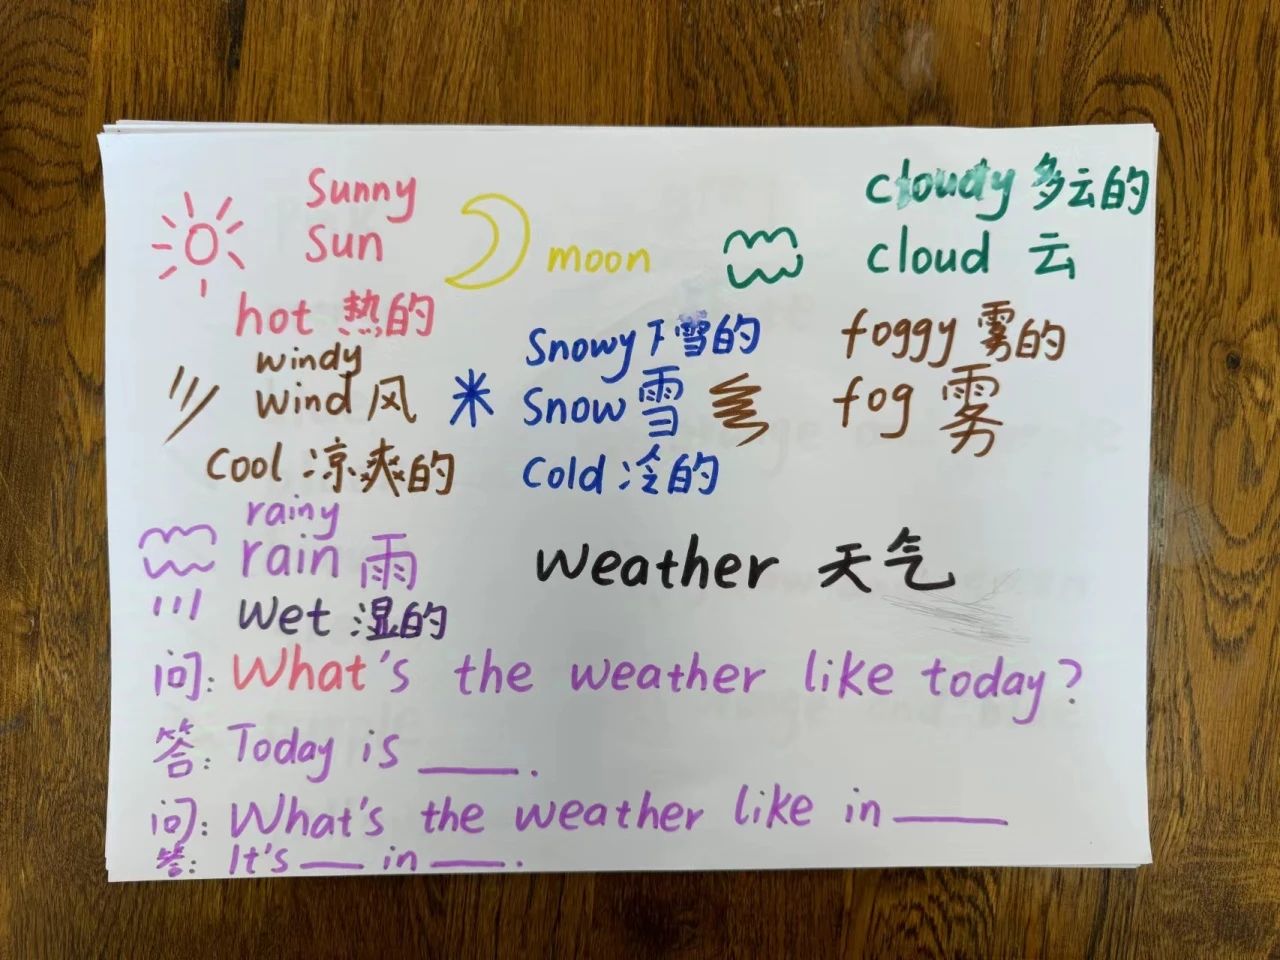 Sunny
Sun
hot 热的
moon
cloudy 多云的
cloud 云
windy
wind 风
Cool 凉爽的
Snowy 下雪的
Snow 雪
Cold 冷的
foggy 雾的
fog 雾
rainy
rain 雨
Wet 湿的
Weather 天气
问: What's the weather like today?
答: Today is ____.
问: What's the weather like in ____
答: It's ____ in ____.